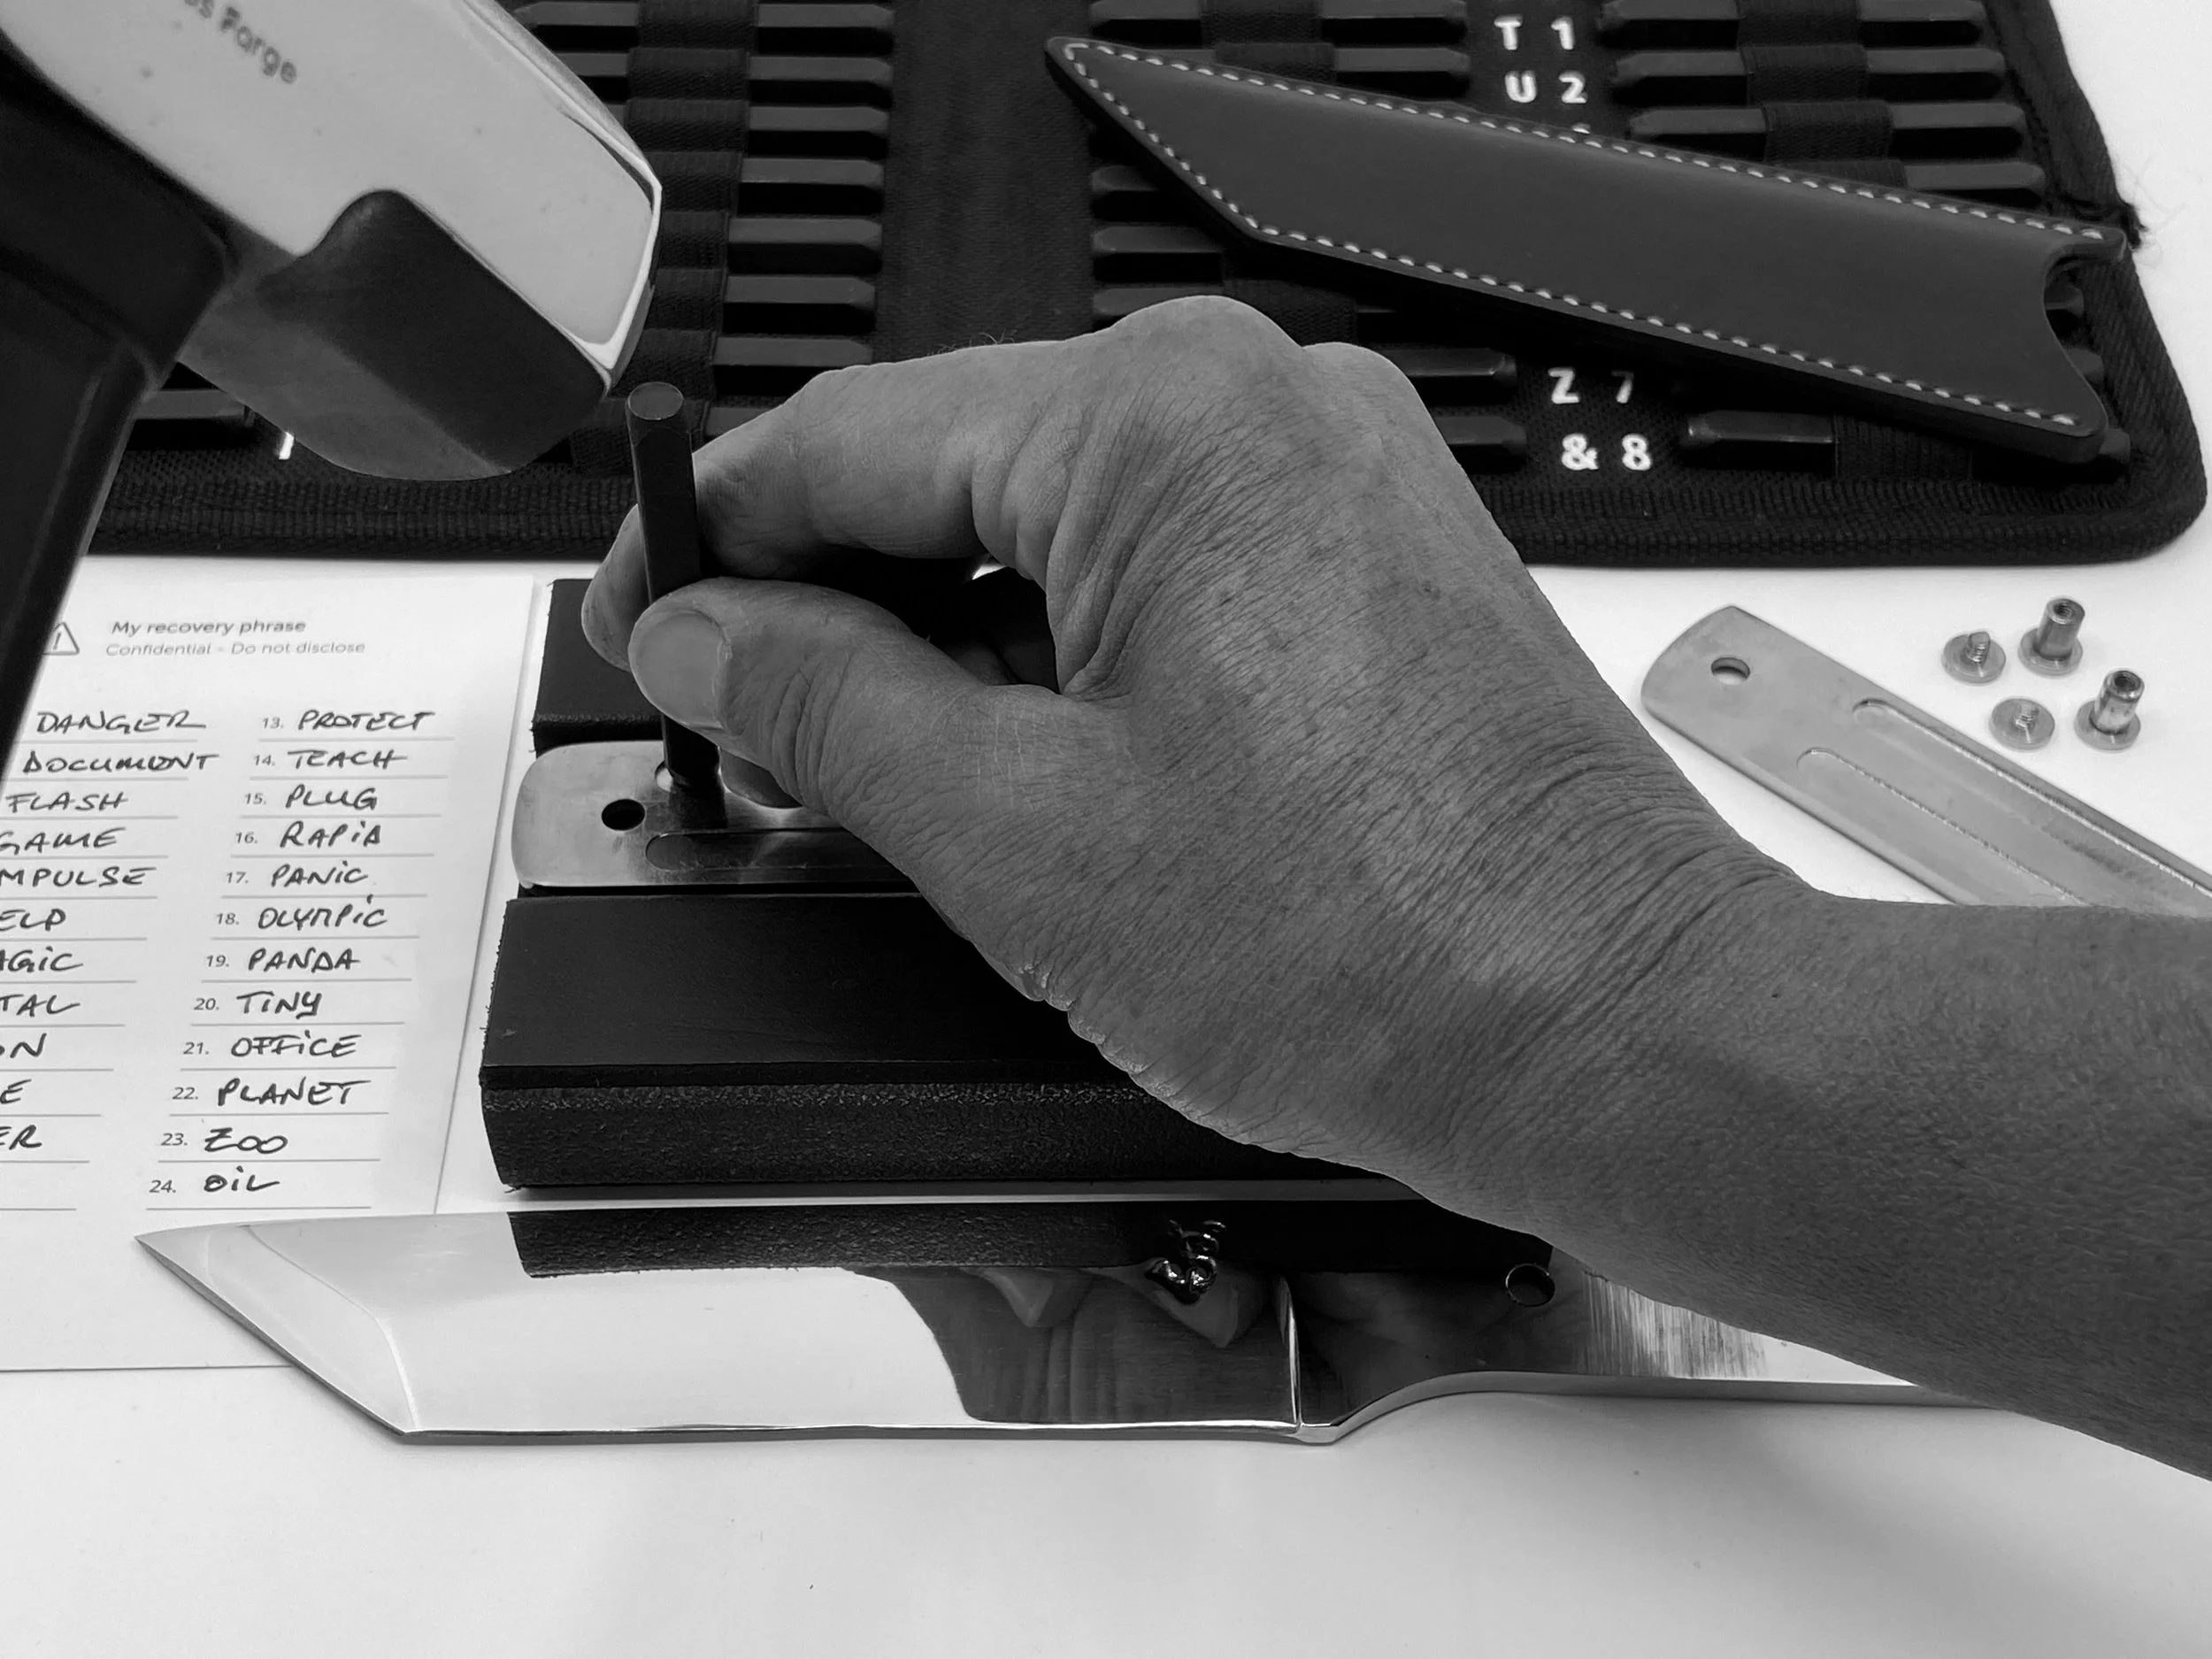 Forge
T 1
U 2
Z 7
& 8
My recovery phrase
Confidential - Do not disclose
DANGER
DOCUMENT
FLASH
GAME
MPULSE
ELP
AGiC
TAL
ON
E
ER
13. PROTECT
14. TEACH
15. PLUG
16. RAPiD
17. PANiC
18. OLYMPiC
19. PANDA
20. TiNY
21. OFFiCE
22. PLANET
23. ZOO
24. OiL